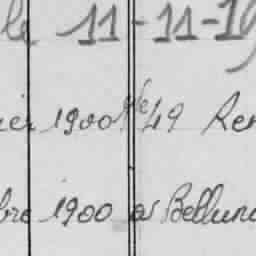 le 11-11-19
ier 1900 N° 49 Ren
bre 1900 à Bellune